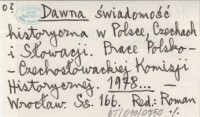 o? Dawna świadomość
historyczna w Polsce, Czechach
i Słowacji. Prace Polsko-
-Czechosłowackiej Komisji
Historycznej. 1978... —
Wrocław. Ss. 166. Red: Roman
BT/010/0750 %.